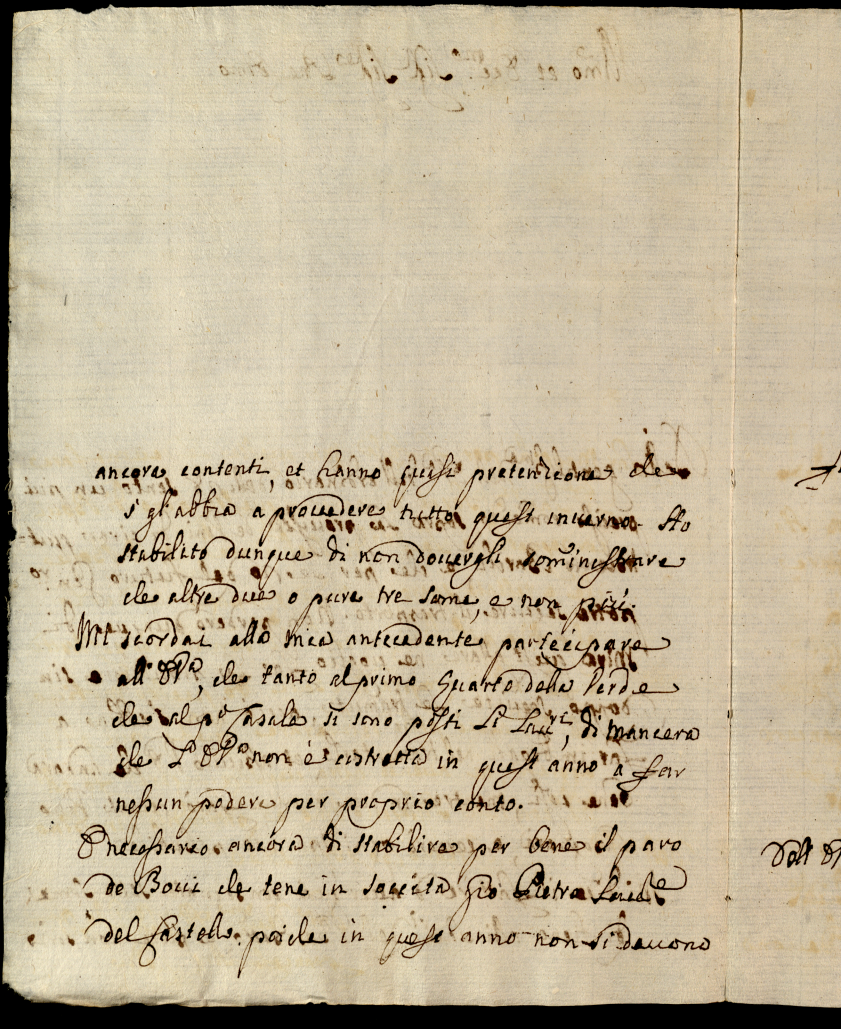 ancora contenti, et hanno quasi pretenzione che
s' gl'abbia a provedere tutto quest inverno. Ho
stabilito dunque di non dovergli sominisstrare
che altre due o pure tre some, e non più.
Mi scordai alla mia antecedente partecipare
all' , che tanto al primo Quarto della Verde
che al po Casale si sono posti Li , di maniera
che non è costretta in quest anno a far
nessun podere per proprio conto.
È necessario ancora di stabilire per bene il paro
de Bovi che tene in soccita Gio Pietro
del Castello. poiche in quest anno non si devono